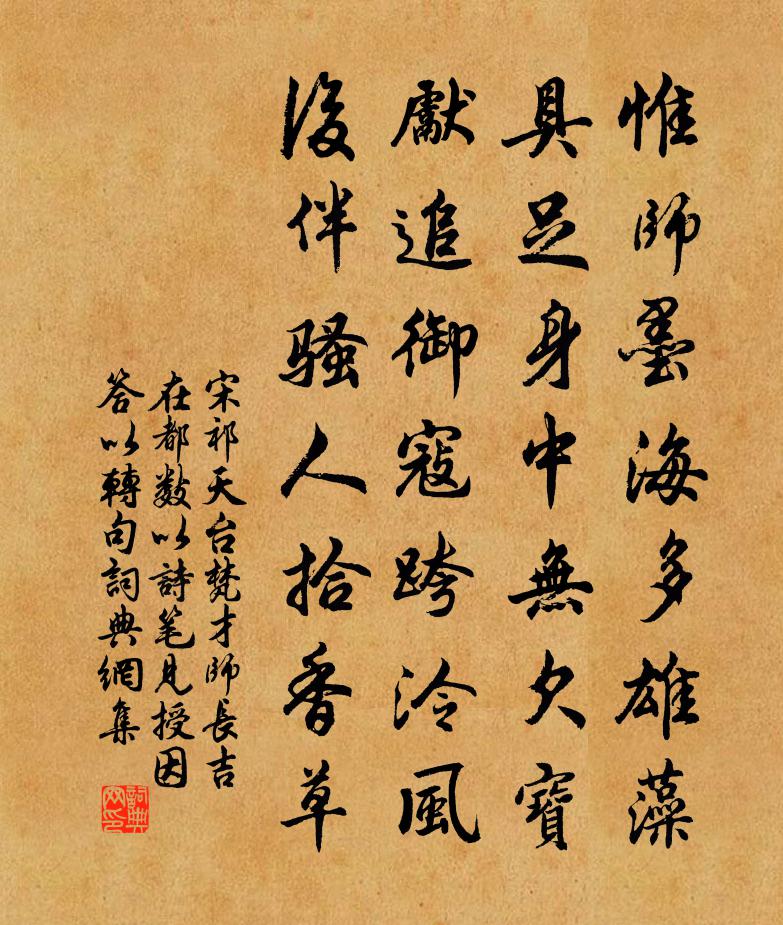 惟師墨海多雄藻
具足身中無欠寶
獻追御寇跨泠風
後伴騷人拾香草
宋祁天台梵才師長吉
在都数以詩笔見授因
答以轉句詞典網集
詞典網印